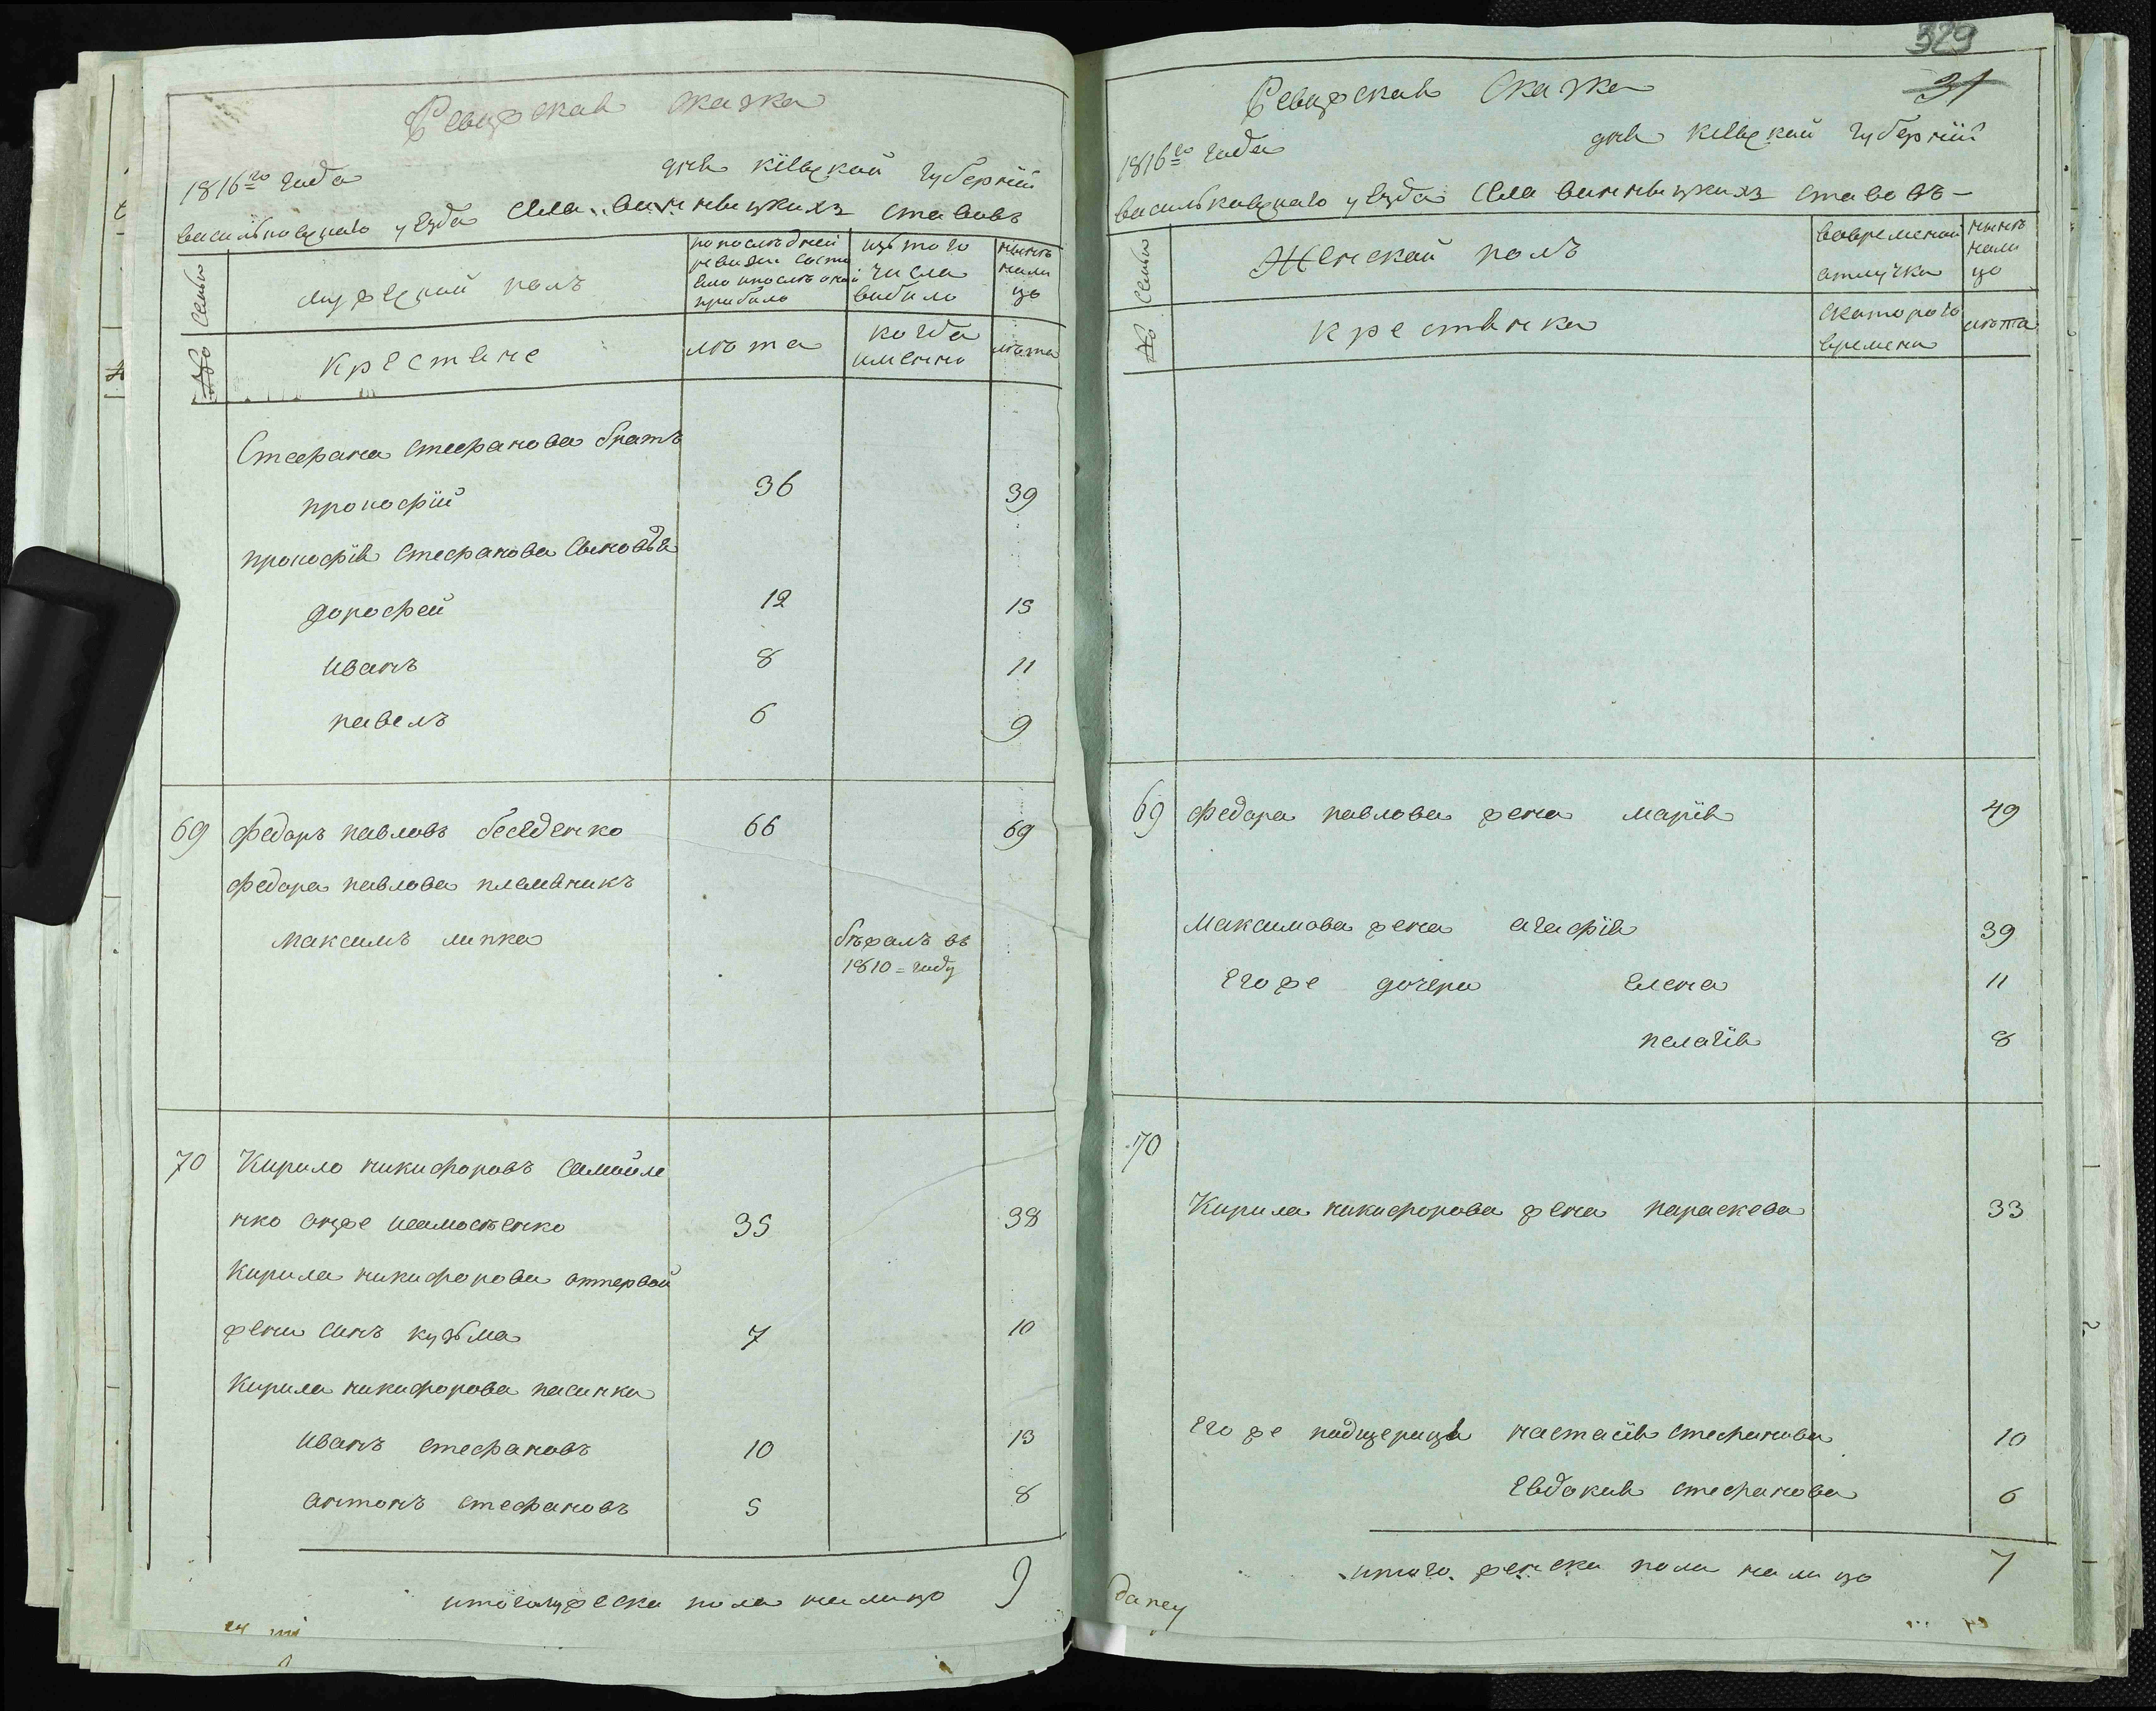 Ревизская сказка
1816го года дня кіевской губерніи
васильковскаго уезда села винницкихъ ставовъ
№ Семьи
мужескій полъ
по последней ревизии состояло и после оной прибыло
изъ того числа выбыло
ныне налицо
крестьяне
лета
когда именно
лета
Стефана стефанова братъ
прокофій 36 39
прокофія стефанова сыновья
дорофей 12 15
иванъ 8 11
павелъ 6 9
69 федоръ павловъ беседенко 66 69
федора павлова племяникъ
максимъ липка бежалъ въ
1810 = году
70 Кирило никифоровъ самойле
нко онже 35 38
Кирила никифорова отпервой
жени синъ кузьма 7 10
Кирила никифорова пасинки
иванъ стефановъ 10 13
антонъ стефановъ 5 8
итого мужеска пола налицо 9
329
31
Ревизская Сказка
1816го года дня кіевской губерніи
васильковскаго уезда села винницкихъ ставовъ
№ Семьи
Женской полъ
вовременной отлучке
ныне налицо
крестьянки
скоторого времени
лета
69 федора павлова жена марія 49
Максимова жена агафія 39
Его же дочери Елена 11
пелагія 8
70
Кирила никифорова жена параскева 33
Его же падщерицы настасія стефанова 10
Евдокия стефанова 6
итого женска пола налицо 7